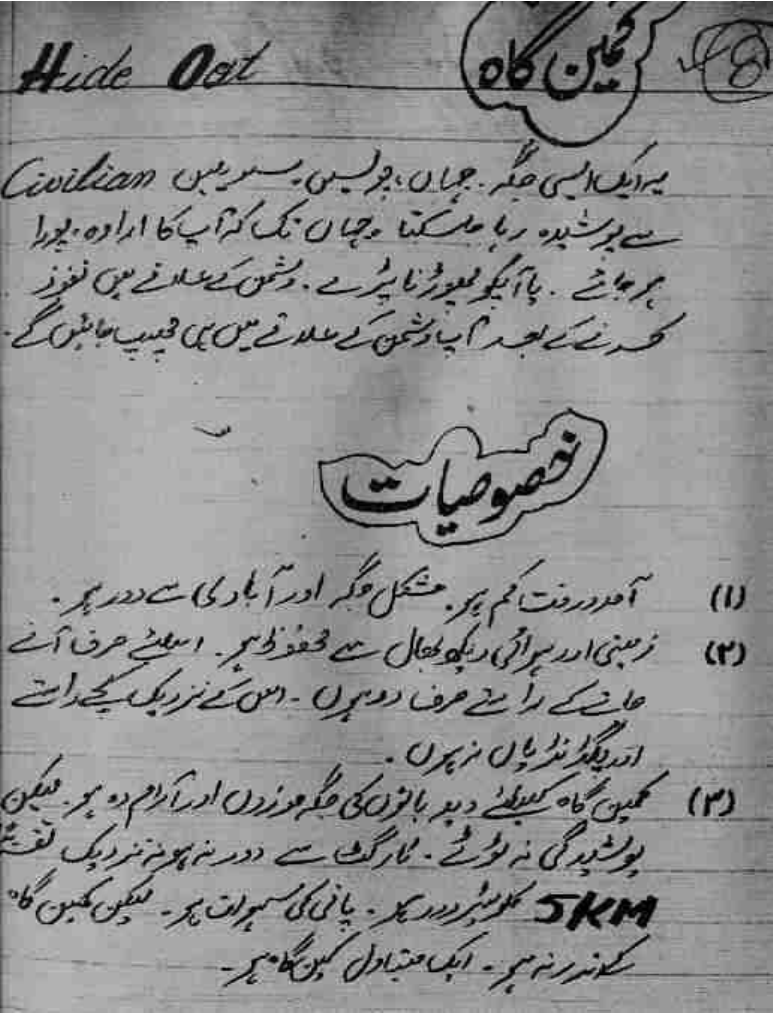 Hide Out کمین گاہ 8
یہ ایک ایسی جگہ۔ جہاں، پولیس۔ سویلین Civilian
سے پوشیدہ رہا جا سکتا وجہاں تک کہ آپ کا ارادہ، پورا
ہو جائے۔ یا آپکو چھوڑنا پڑے۔ دشمن کے علاقے میں نفوذ
کرنے کے بعد آپ دشمن کے علاقے میں ہی چھپ جائیں گے۔
خصوصیات
(۱) آمدورفت کم ہو۔ مشکل جگہ اور آبادی سے دور ہو۔
(۲) زمینی اور ہوائی دیکھ بھال سے محفوظ ہو۔ اسلئے صرف آنے
جانے کے راستے صرف دو ہوں۔ اس کے نزدیک کچے راستے
اور پگڈنڈیاں نہ ہوں۔
(۳) کمین گاہ کیلئے دیو باتوں کی جگہ موزوں اور آرام دہ ہو۔ لیکن
پوشیدگی نہ ٹوٹے۔ ٹارگٹ سے دور نہ ہو نہ نزدیک
5KM کلومیٹر دور ہو۔ پانی کی سہولت ہو۔ لیکن کمین گاہ
کے اندر نہ ہو۔ ایک متبادل کمین گاہ ہو۔